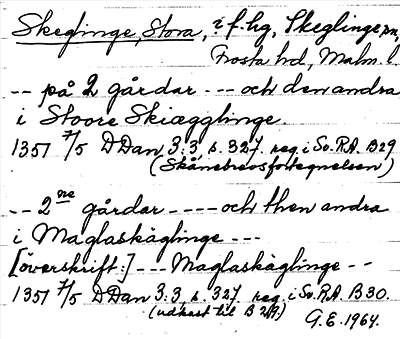 Skeglinge, Stora, i f. hg, Skeglinge sn,
Frosta hd, Malm. l.
-- på 2 gårdar --- och den andra
i Stoore Skiægglinge
1351 7/5 DDan 3:3, s. 327. reg. i Sv. RA. B29
(Skånebrevsfortegnelsen)
-- 2ne gårdar ---- och then andra
i Maglaskäglinge ---
[överskrift:] --- Maglaskäglinge --
1351 7/5 DDan 3:3, s. 327. reg. i Sv. RA. B30.
(udkast til B 29).
G.E. 1964.